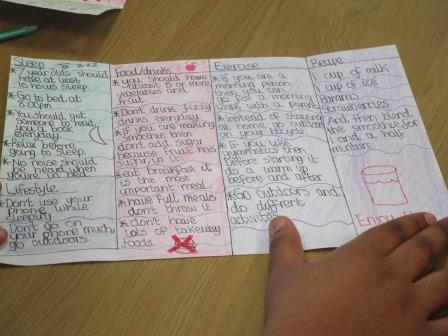 Sleep zzz
* 7 year olds should
have at least
10 hours sleep.
* Go to bed at
8:00pm
* You should get
someone to read
you a book
everyday.
* Relax before
going to sleep.
* No noise should
be heard when
you're in bed
Lifestyle
* Don't use your
phone while
sleeping
Don't go on
your phone much
go outdoors.
Food/drinks
* you should have
atleast 5 or more
vegetables and
fruit
* Don't drink fizzy
drinks everyday.
* If you are making
smoothie then
don't add sugar
because fruit has
sugar in it
* eat breakfast it
is the most
important meal.
* have full meals
don't throw it.
* don't have
lots of takeway
foods.
Exercise
* If you are a
morning person
then you can
go for a morning
walk with a parent
* Instead of staying
at home go outside
your bicycle
* If you like
gymnastics then
before starting it
do a warm up
before and after
* Go outdoors and
do different
activities
Recipe
1 cup of milk
1 cup of ice
Banana
Strawberries
And then blend
the smoothie for
one and a half
minutes
Enjoy